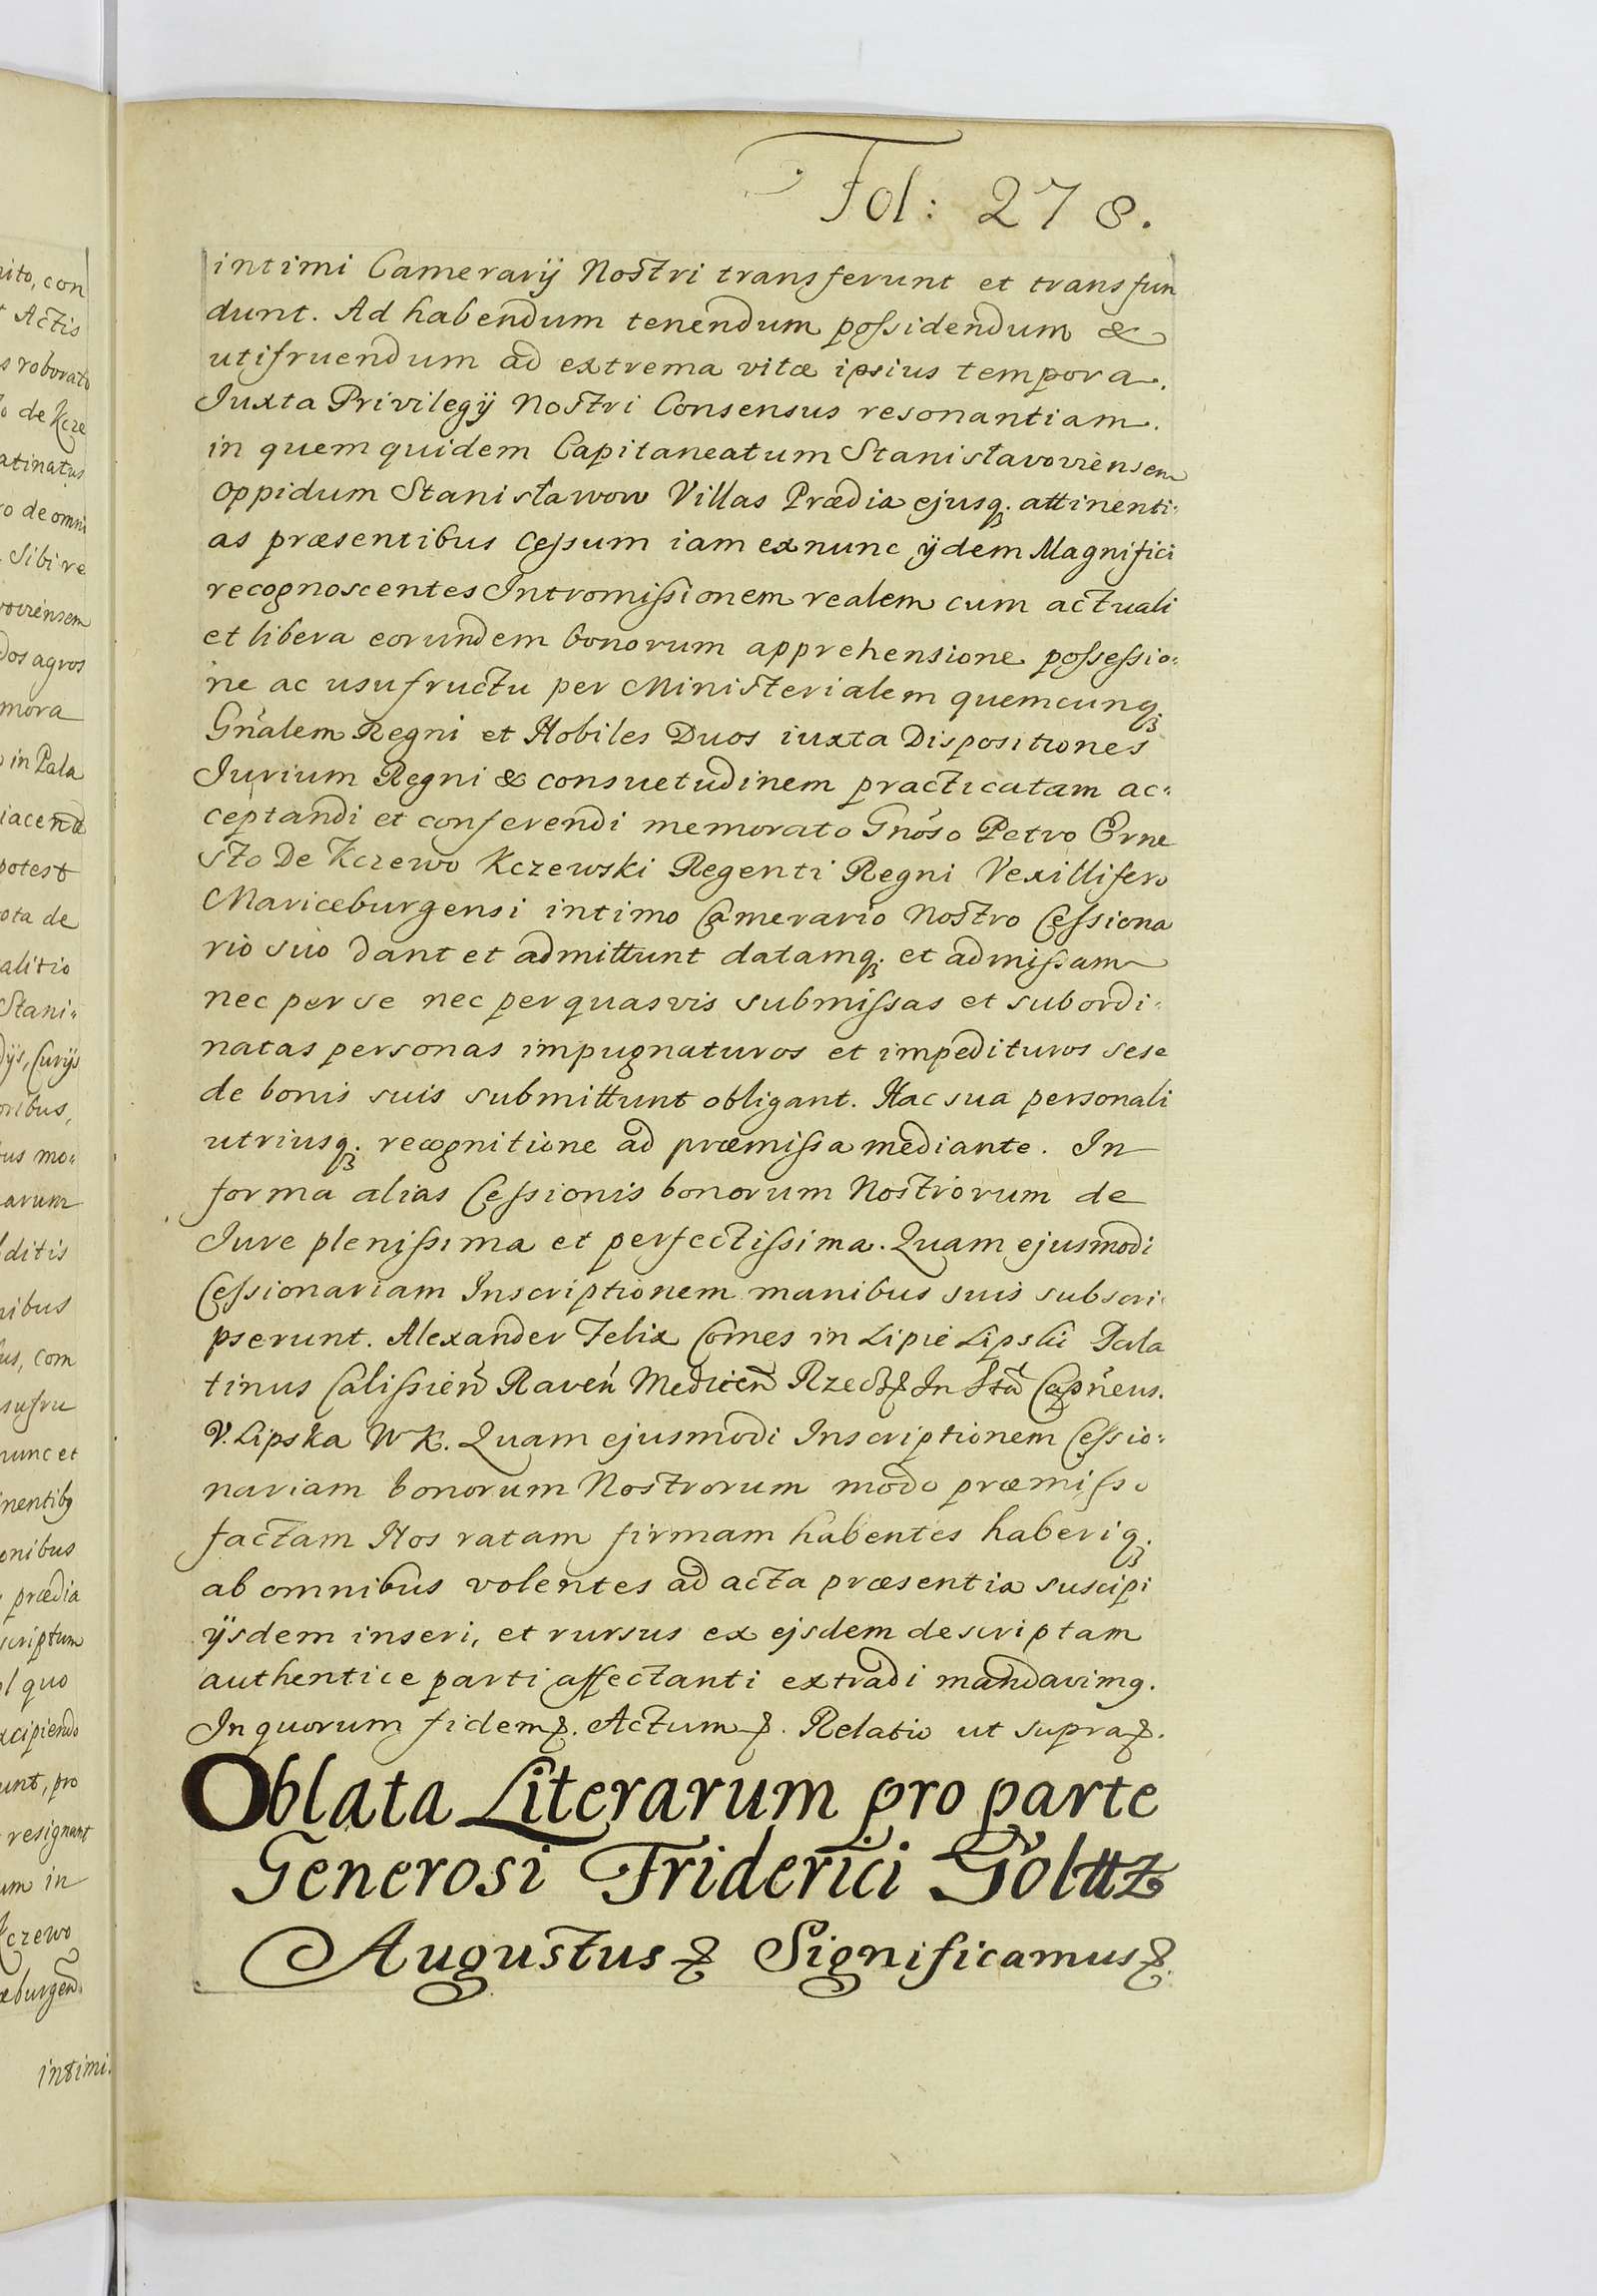 Fol: 278.
intimi Camerarij Nostri transferunt et transfun
dunt. Ad habendum tenendum possidendum &
utifruendum ad extrema vitæ ipsius tempora.
Iuxta Privilegij Nostri Consensus resonantiam.
in quem quidem Capitaneatum Stanisławoviensem
oppidum Stanisławow Villas Prædia ejusq; attinenti:
as præsentibus cessum iam exnunc ijdem Magnifici
recognoscentes Intromissionem realem cum actuali
et libera eorundem bonorum apprehensione possessio:
ne ac usufructu per Ministerialem quemcunq;
Gnãlem Regni et Nobiles Duos iuxta Dispositiones
Iurium Regni & consuetudinem practicatam ac:
ceptandi et conferendi memorato Gnõso Petro Erne
sto De Kczewo Kczewski Regenti Regni Vexillifero
Mariæburgensi intimo Camerario Nostro Cessiona
rio suo dant et admittunt datamq; et admissam
nec per se nec per quasvis submissas et subordi:
natas personas impugnaturos et impedituros sese
de bonis suis submittunt obligant. Hac sua personali
utriusq; recognitione ad præmissa mediante. In
forma alias Cessionis bonorum Nostrorum de
Iure plenissima et perfectissima. Quam ejusmodi
Cessionariam Inscriptionem manibus suis subscri:
pserunt. Alexander Felix Comes in Lipie Lipski Pala
tinus Calissien̄ Raven̄ Medicen̄ In Capn̄eus.
V. Lipska W K. Quam ejusmodi Inscriptionem Cessio:
nariam bonorum Nostrorum modo præmisso
factam Nos ratam firmam habentes haberiq;
ab omnibus volentes ad acta præsentia suscipi
ijsdem inseri, et rursus ex ejsdem descriptam
authentice parti affectanti extradi mandavimꝰ.
In quorum fidem &. Actum &. Relatio ut supra &.
Oblata Literarum pro parte
Generosi Friderici Golttz
Augustus & Significamus &.
ito, con
Actis
s roborato
o de Kcze
atinatus
o de omni
Sibi re
voviensem
dos agros
mora
in Pala
potest
ota de
alitio
Stani:
dijs, Curijs
oribus,
us mo:
arum
ditis
nibus
us, com
susfru
nunc et
inentibꝰ
onibus
prædia
scriptum
l quo
xcipiendo
unt, pro
resignant
um in
Kczewo
æburgen̄.
intimi.